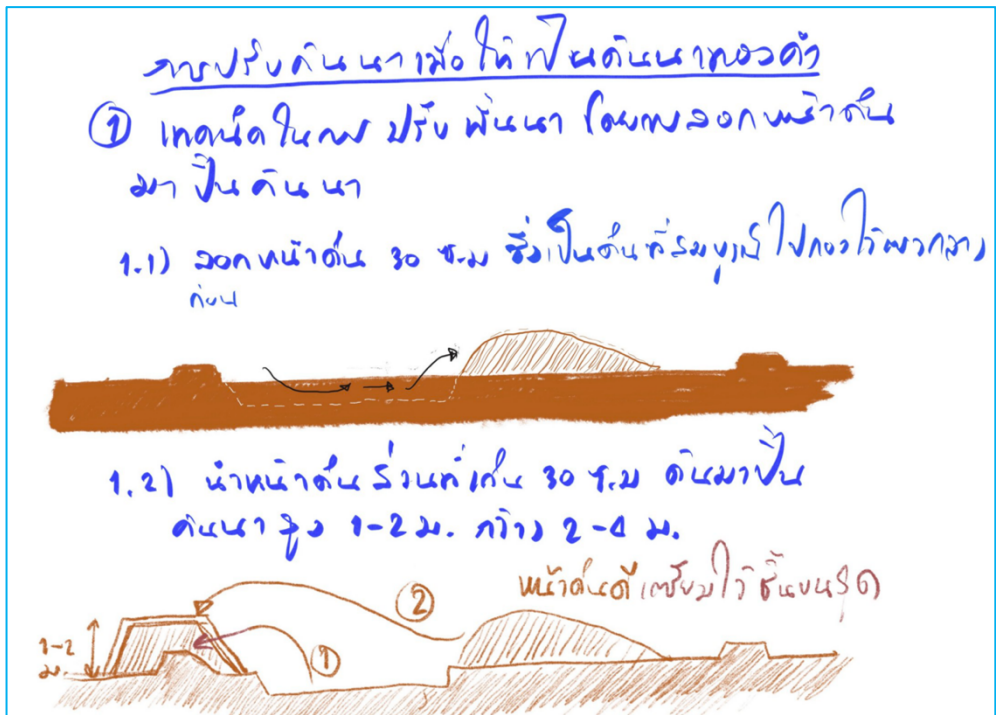 การปรับคันนาเพื่อให้เป็นคันนาทองคำ
① เทคนิคในการปรับพื้นนา โดยการลอกหน้าดิน
มาปั้นคันนา
1.1) ลอกหน้าดิน 30 ซ.ม ซึ่งเป็นดินที่สมบูรณ์ไปกองไว้ตรงกลาง
ก่อน
1.2) นำหน้าดินส่วนที่เกิน 30 ซ.ม ดันมาปั้น
คันนาสูง 1-2 ม. กว้าง 2-4 ม.
หน้าดินดีเตรียมไว้ชั้นบนสุด
②
①
1-2
ม.